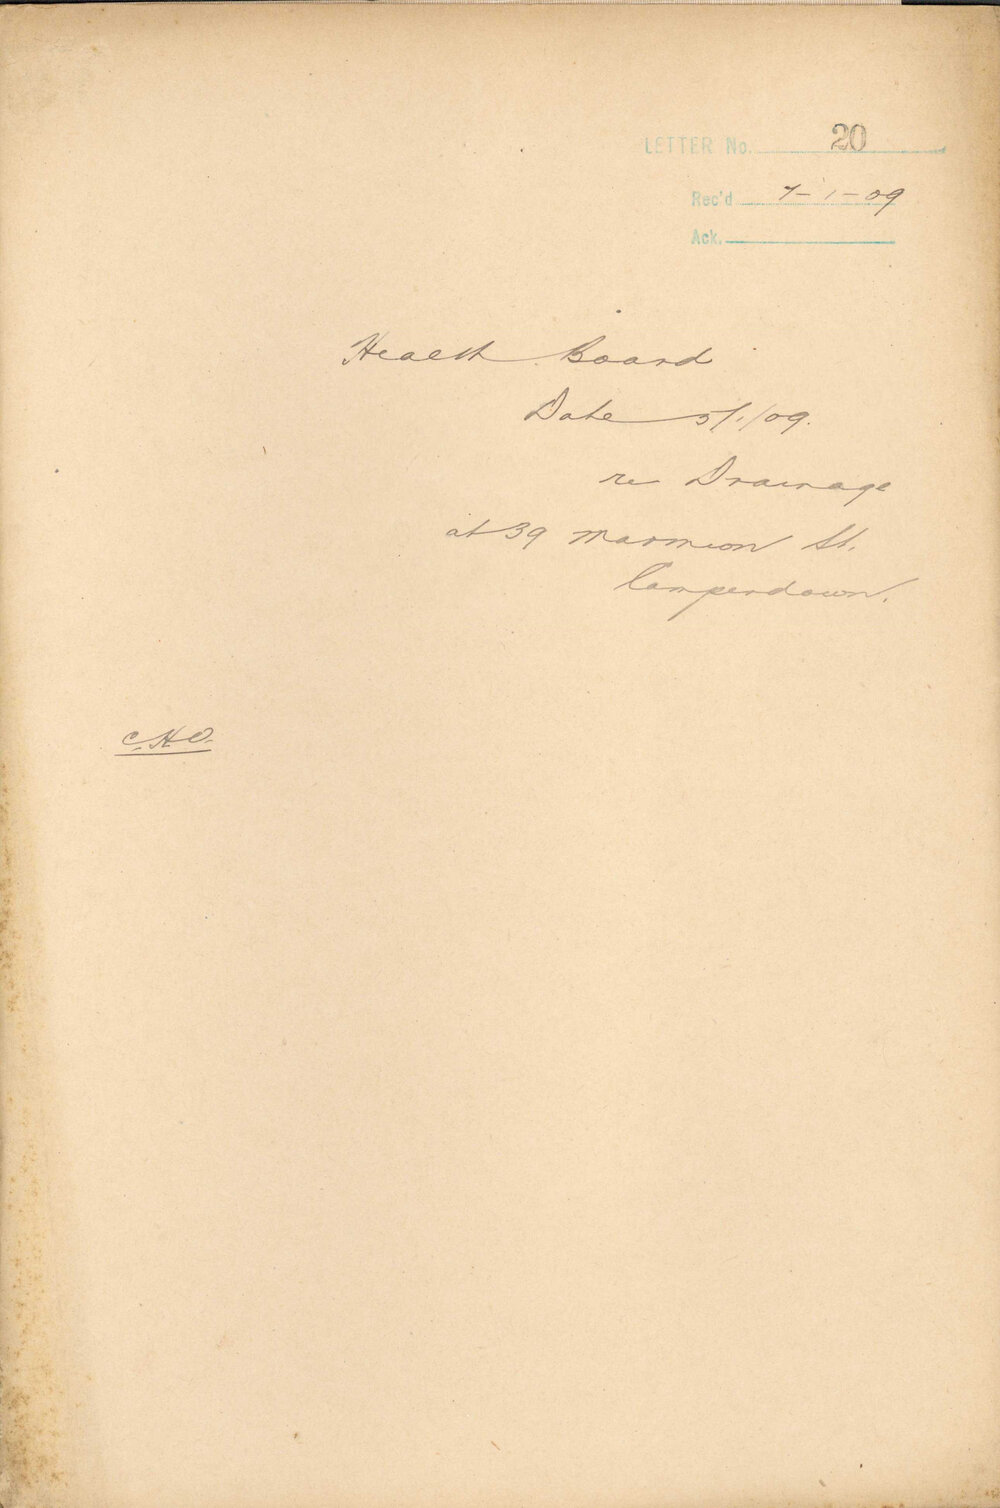 LETTER No. 20
Rec'd 7-1-09
Ack.
Health Board
Date 5/1/09.
re Drainage
at 39 Marmion St.
Camperdown.
C.H.O.